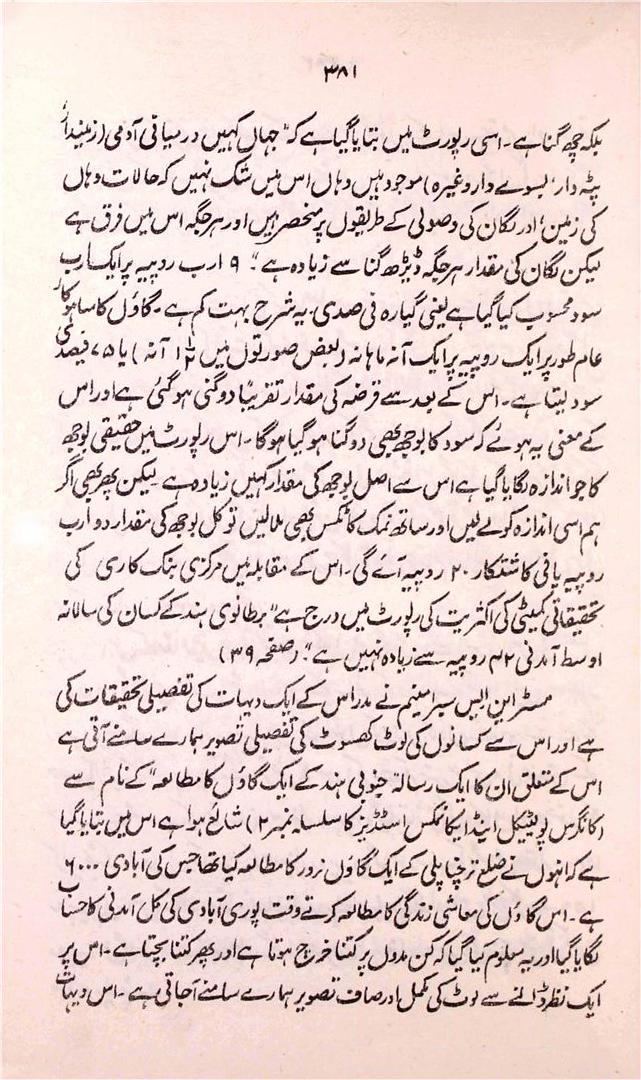 ۳۸۱
بلکہ چھ گنا ہے۔ اسی رپورٹ میں بتایا گیا ہے کہ "جہاں کہیں درمیانی آدمی (زمیندار،
پٹہ دار، بسوے دار وغیرہ) موجود ہیں وہاں اس میں شک نہیں کہ حالات وہاں
کی زمین، اور لگان کی وصولی کے طریقوں پر منحصر ہیں اور ہر جگہ اس میں فرق ہے
لیکن لگان کی مقدار ہر جگہ ڈیڑھ گنا سے زیادہ ہے"۔ ۹ ارب روپیہ پر ایک ارب
سود محسوب کیا گیا ہے یعنی گیارہ فی صدی۔ یہ شرح بہت کم ہے۔ گاؤں کا ساہوکار
عام طور پر ایک روپیہ پر ایک آنہ ماہانہ (بعض صورتوں میں ۱½ آنہ) یا ۷۵ فیصدی
سود لیتا ہے۔ اس کے بعد سے قرضہ کی مقدار تقریباً دوگنی ہو گئی ہے اور اس
کے معنی یہ ہوئے کہ سود کا بوجھ بھی دوگنا ہو گیا ہوگا۔ اس رپورٹ میں حقیقی بوجھ
کا جو اندازہ لگایا گیا ہے اس سے اصل بوجھ کی مقدار کہیں زیادہ ہے۔ لیکن پھر بھی اگر
ہم اسی اندازہ کو لے لیں اور ساتھ نمک کا ٹکس بھی ملا لیں تو کل بوجھ کی مقدار دو ارب
روپیہ یا فی کاشتکار ۲۰ روپیہ آئے گی۔ اس کے مقابلہ میں مرکزی بنک کاری کی
تحقیقاتی کمیٹی کی اکثریت کی رپورٹ میں درج ہے "برطانوی ہند کے کسان کی سالانہ
اوسط آمدنی ۴۲ روپیہ سے زیادہ نہیں ہے"۔ (صفحہ ۳۹)
مسٹر این ایس سبرامینم نے مدراس کے ایک دیہات کی تفصیلی تحقیقات کی
ہے اور اس سے کسانوں کی لوٹ کھسوٹ کی تفصیلی تصویر ہمارے سامنے آتی ہے
اس کے متعلق ان کا ایک رسالہ "جنوبی ہند کے ایک گاؤں کا مطالعہ" کے نام سے
(کانگرس پولیٹیکل اینڈ اکانمکس اسٹڈیز کا سلسلہ نمبر ۲) شائع ہوا ہے اس میں بتایا گیا
ہے کہ انہوں نے ضلع ترچناپلی کے ایک گاؤں نرور کا مطالعہ کیا تھا جس کی آبادی ۶۰۰۰
ہے۔ اس گاؤں کی معاشی زندگی کا مطالعہ کرتے وقت پوری آبادی کی کل آمدنی کا حساب
لگایا گیا اور یہ معلوم کیا گیا کہ کن مدوں پر کتنا خرچ ہوتا ہے اور پھر کتنا بچتا ہے۔ اس پر
ایک نظر ڈالنے سے لوٹ کی مکمل اور صاف تصویر ہمارے سامنے آ جاتی ہے۔ اس دیہات